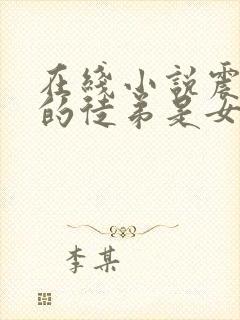 在綫小説震
的徒弟是女
李某